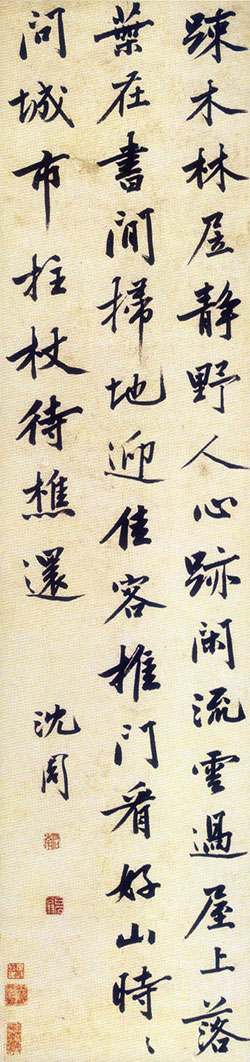 疎木林居静野人心跡閑流雲過屋上落
葉在書間掃地迎佳客推門看好山時〻
问城市拄杖待樵還
沈周